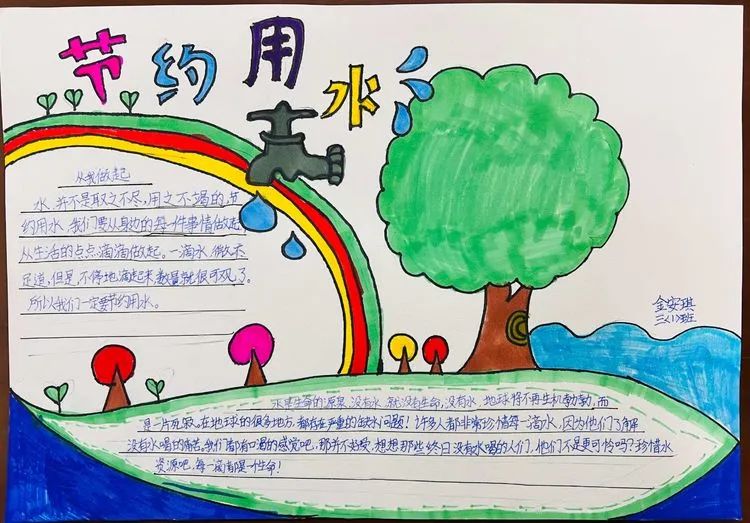 节约用水
从我做起
水,并不是取之不尽,用之不竭的,节
约用水,我们要从身边的每一件事情做起
从生活的点点滴滴做起。一滴水,微不
足道,但是,不停地滴起来,数量就很可观了。
所以我们一定要节约用水。
金安琪
三(1)班
水是生命的源泉,没有水,就没有生命,没有水,地球将不再生机勃勃,而
是一片死寂。在地球的很多地方,都存在严重的缺水问题!许多人都非常珍惜每一滴水,因为他们了解
没有水喝的痛苦。我们都有口渴的感觉吧,那并不好受,想想那些终日没有水喝的人们,他们不是更可怜吗?珍惜水
资源吧,每一滴都是一个生命!